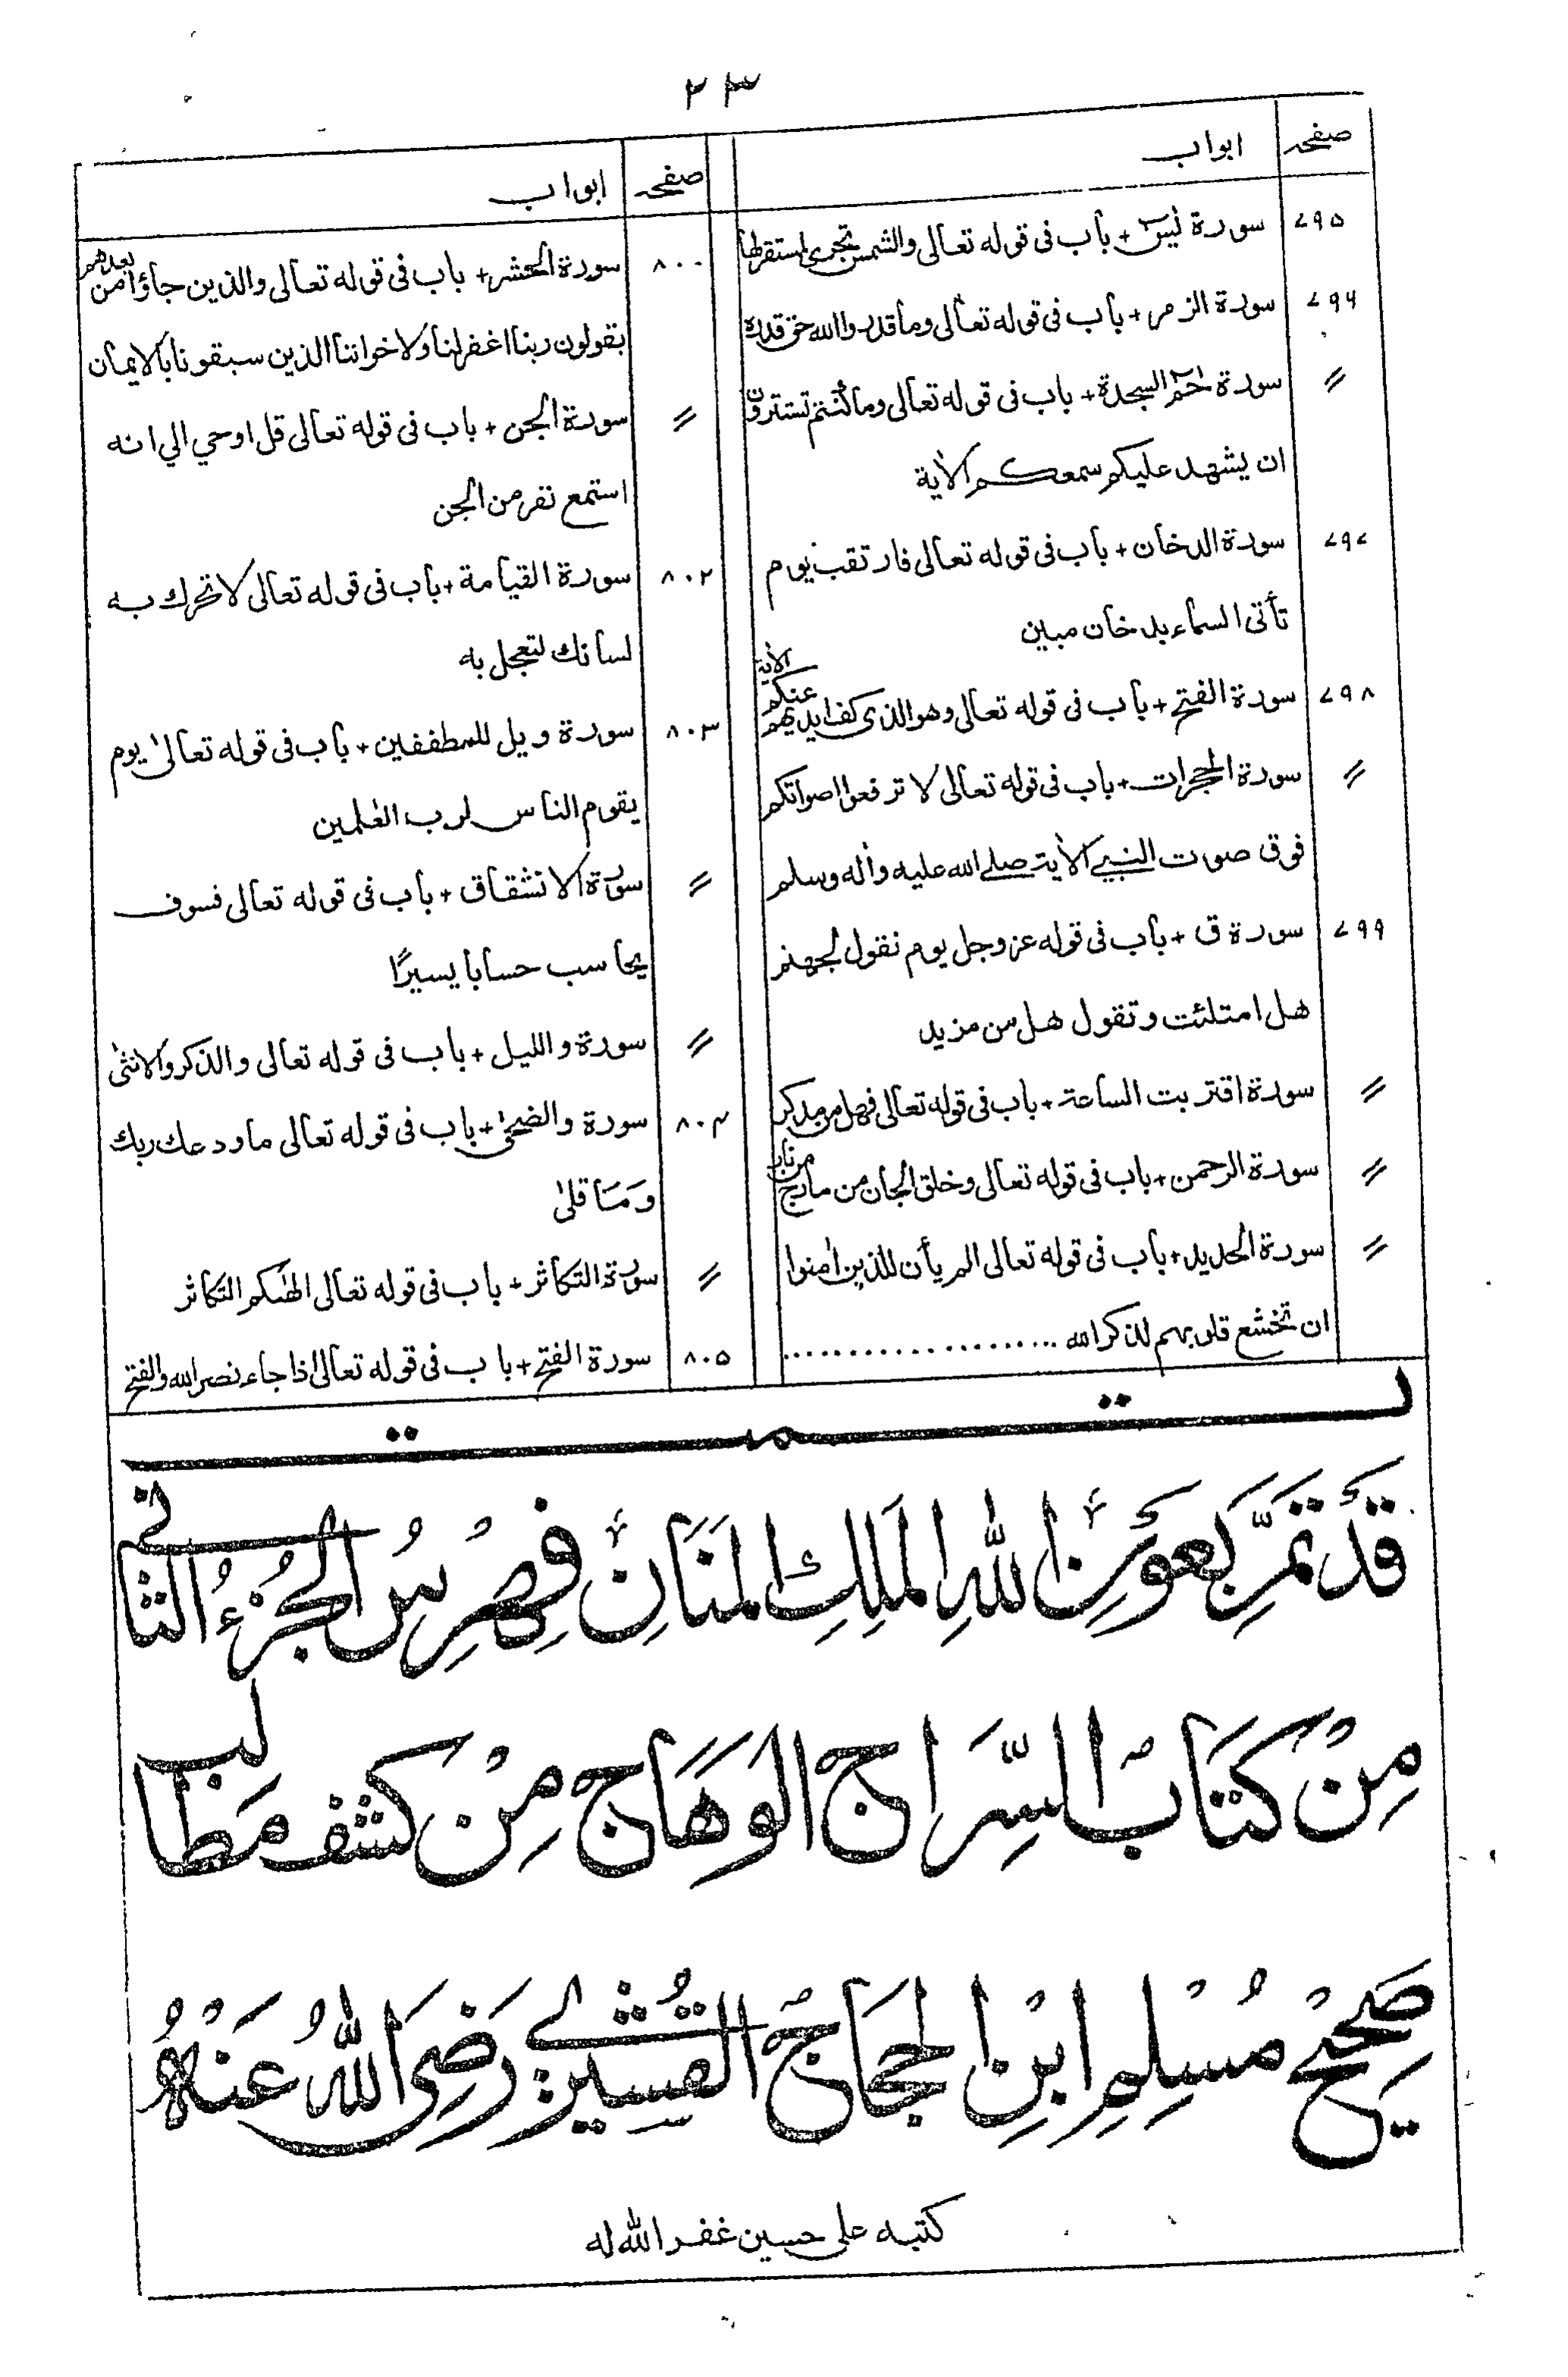 ٢٣
صفحہ ابواب
٧٩٥ سورة يٰسٓ + باب فى قوله تعالى والشمس تجرى لمستقر لها
٧٩٦ سورة الزمر + باب فى قوله تعالى وما قدروا الله حق قدره
〃 سورة حٰمٓ السجدة + باب فى قوله تعالى وما كنتم تستترون
ان يشهد عليكم سمعكم الاٰية
٧٩٧ سورة الدخان + باب فى قوله تعالى فارتقب يوم
تأتى السماء بدخان مبين
٧٩٨ سورة الفتح + باب فى قوله تعالى وهو الذى كف ايديهم عنكم الاٰية
〃 سورة الحجرات + باب فى قوله تعالى لا ترفعوا اصواتكم
فوق صوت النبي الاٰية صلے الله عليه واٰله وسلم
٧٩٩ سورة ق + باب فى قوله عز وجل يوم نقول لجهنم
هل امتلئت وتقول هل من مزيد
〃 سورة اقتربت الساعة + باب فى قوله تعالى فهل من مدكر
〃 سورة الرحمن + باب فى قوله تعالى وخلق الجان من مارج من نار
〃 سورة الحديد + باب فى قوله تعالى الم يأن للذين اٰمنوا
ان تخشع قلوبهم لذكر الله ....................
صفحہ ابواب
٨٠٠ سورة الحشر + باب فى قوله تعالى والذين جاؤا من بعدهم
يقولون ربنا اغفر لنا ولاخواننا الذين سبقونا بالايمان
〃 سورة الجن + باب فى قوله تعالى قل اوحي الي انه
استمع نفر من الجن
٨٠٢ سورة القيامة + باب فى قوله تعالى لا تحرك به
لسانك لتعجل به
٨٠٣ سورة ويل للمطففين + باب فى قوله تعالىٰ يوم
يقوم الناس لرب العٰلمين
〃 سورة الانشقاق + باب فى قوله تعالى فسوف
يحاسب حسابا يسيرًا
〃 سورة والليل + باب فى قوله تعالى والذكر والانثىٰ
٨٠٤ سورة والضحىٰ + باب فى قوله تعالى ما ودعك ربك
وَمَا قلىٰ
〃 سورة التكاثر + باب فى قوله تعالى الهٰكم التكاثر
٨٠٥ سورة الفتح + باب فى قوله تعالى اذا جاء نصر الله والفتح
تـمـت
قَدْ تَمَّ بِعَوْنِ اللهِ المَلِكِ المَنَّانِ فِهْرِسُ الجُزْءِ الثَّانِي
مِنْ كِتَابِ السِّرَاجِ الوَهَّاجِ مِنْ كَشْفِ مَطَالِب
صَحِيْحِ مُسْلِمِ ابْنِ الحَجَّاجِ القُشَيْرِي رَضِيَ اللهُ عَنْهُ
كتبه على حسين غفر الله له